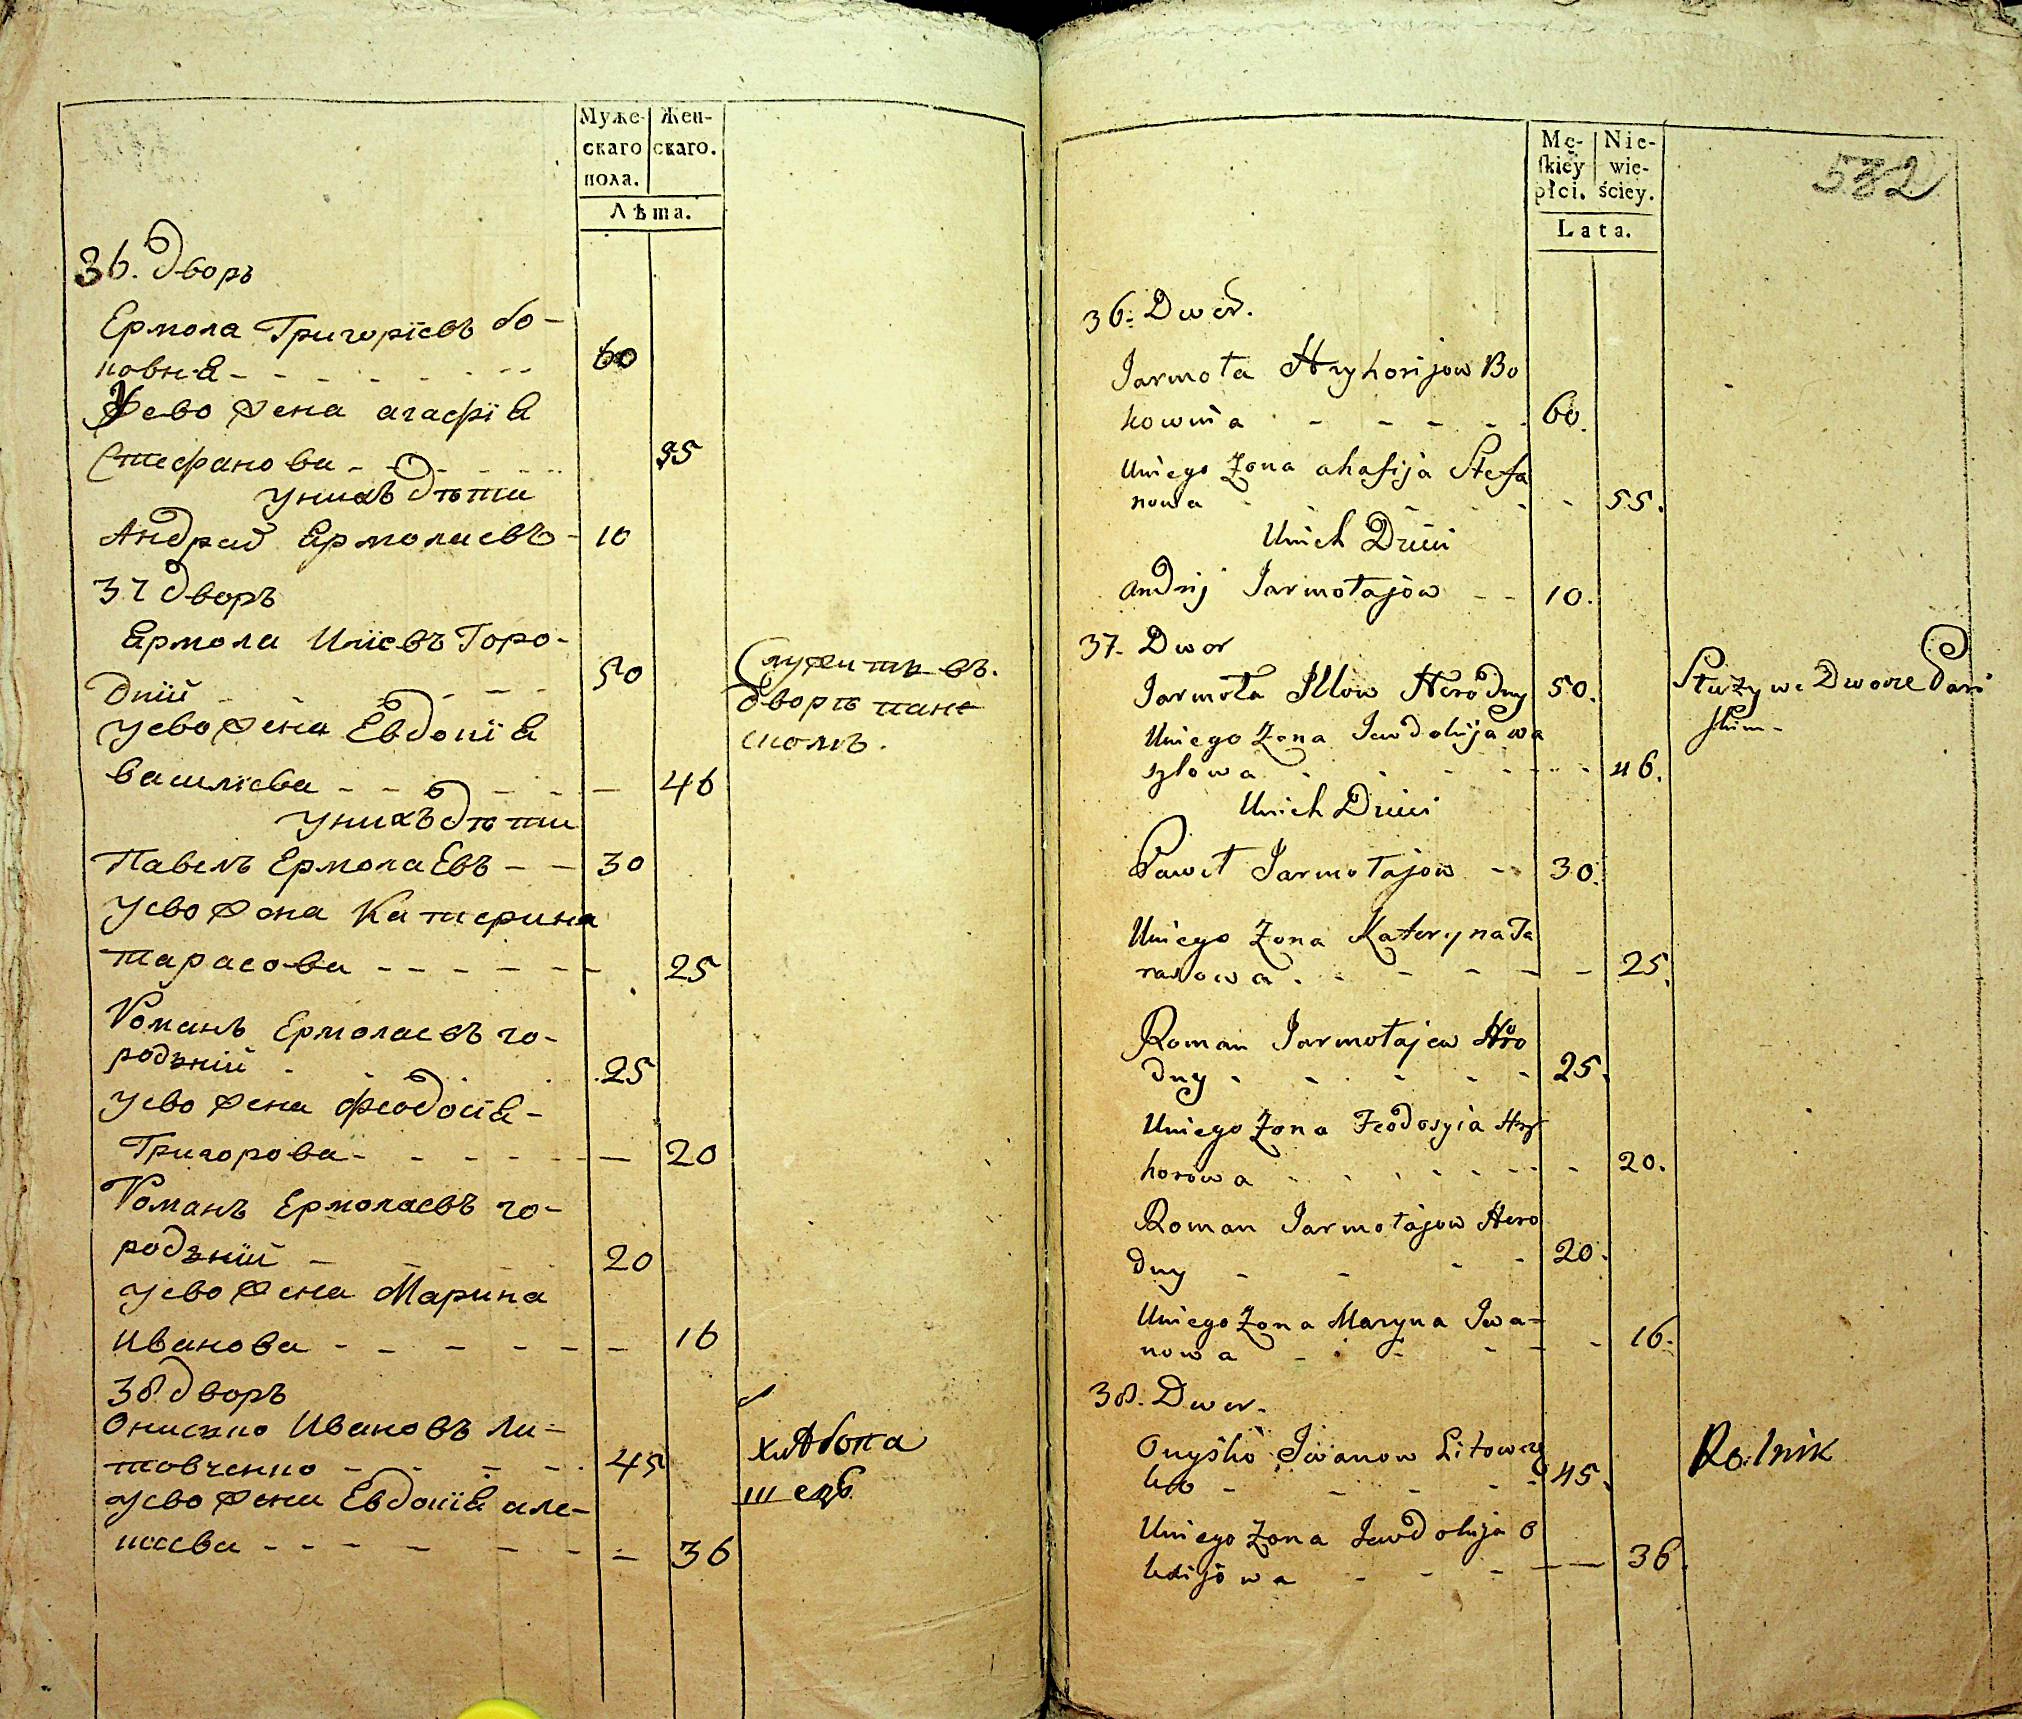 Муже-
скаго
пола.
Жен-
скаго.
Лѣта.
36. дворъ
Ермола Григорїевъ бо-
ковня - - - - - - 60
Уево жена агафїя
Стефанова - - - - - 55
унихъ дѣти
Андрей Ермолаевъ - 10
37 дворъ
Ермола Илїевъ Горо-
днїй - - - - - 50
уево жена Евдокїя
василїева - - - - - 46
унихъ дѣти
Павелъ Ермолаевъ - - 30
уево жена Катерина
тарасова - - - - - - 25
Романъ Ермолаевъ го-
родънїй - - - - 25
уево жена феодосїя -
Григорова - - - - - - 20
Романъ Ермолаевъ го-
родънїй - - - 20
уево жена Марина
иванова - - - - - - - 16
38 дворъ
Онисько Ивановъ ли-
товченко - - - - 45
уево жена Евдокїя але-
ксѣева - - - - - - - 36
Служитъ въ
дворѣ пан
скомъ.
хлѣбопа
шецъ
Mę-
ſkiéy
płci.
Nie-
wie-
ściey.
Lata.
582
36. Dwor.
Jarmoła Hryhorijow Bo
kownia - - - - - 60.
Uniego Zona ahafija Stefa
nowa - - - - - - 55.
Unich Dzieci
andrij Jarmołajow - - 10.
37. Dwor
Jarmoła Illow Horodny 50.
Uniego Zona Jewdokija wa
sylowa - - - - - - 46.
Unich Dzieci
Paweł Jarmołajow - - 30.
Uniego Zona Kateryna Ta
rasowa - - - - - - 25.
Roman Jarmołajew Horo
dny - - - - - 25.
Uniego Zona Feodosyia Hry
horowa - - - - - - - 20.
Roman Jarmołajow Horo
dny - - - - 20.
Uniego Zona Maryna Iwa-
nowa - - - - - - 16.
38. Dwor.
Onyśko Iwanow Litowcz
ko - - - - - 45.
Uniego Zona Jewdokija O
leksijowa - - - - - 36.
Służy we Dworze Pań
skim -
Rolnik